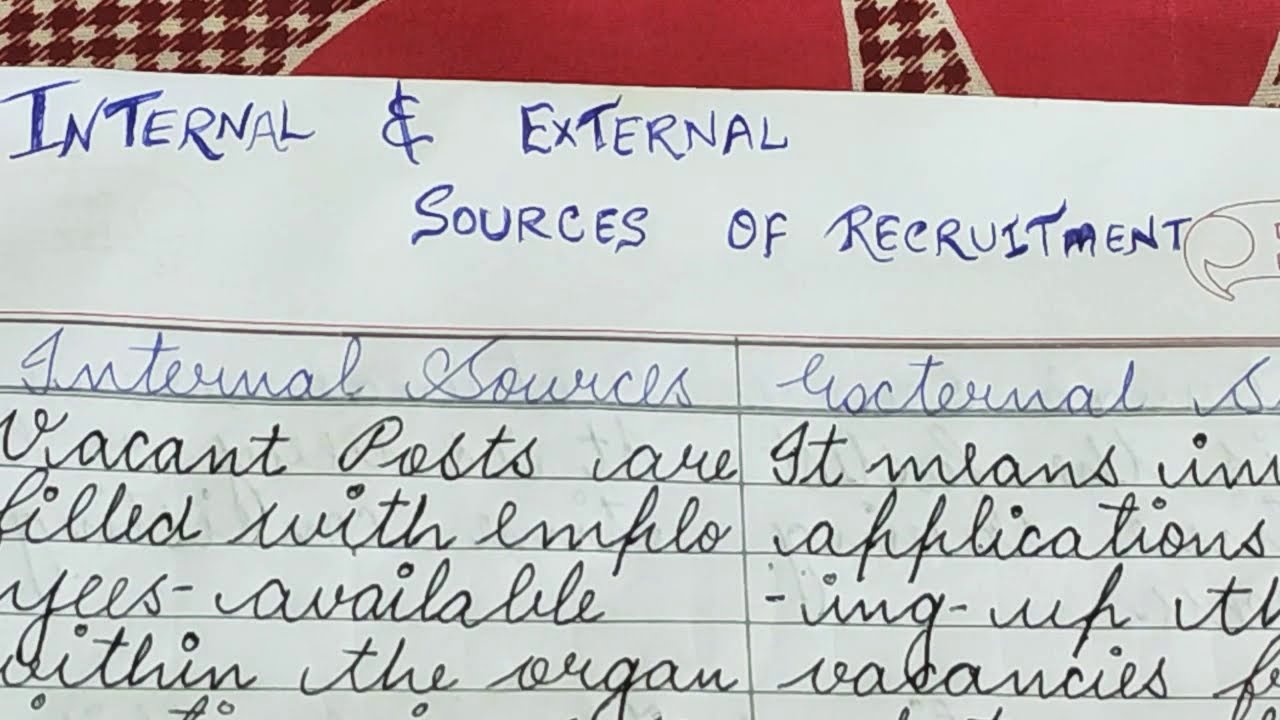 INTERNAL & EXTERNAL
SOURCES OF RECRUITMENT
Internal Sources
Vacant Posts are
filled with emplo
yees- available
within the organ
External
It means
applications
-ing-up
vacancies